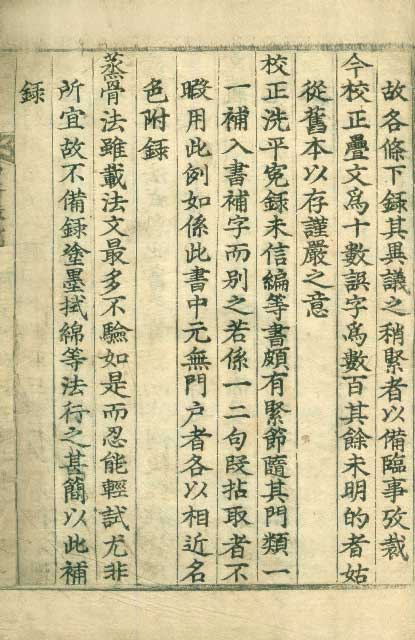 故各條下錄其異議之稍緊者以備臨事攷裁
今校正疊文爲十數誤字爲數百其餘未明的者姑
從舊本以存謹嚴之意
校正洗平寃錄未信編等書頗有緊節隨其門類一
一補入書補字而別之若係一二句段拈取者不
暇用此例如係此書中元無門户者各以相近名
色附錄
蒸骨法雖載法文最多不驗如是而忍能輕試尤非
所宜故不備錄塗墨拭綿等法行之甚簡以此補
錄